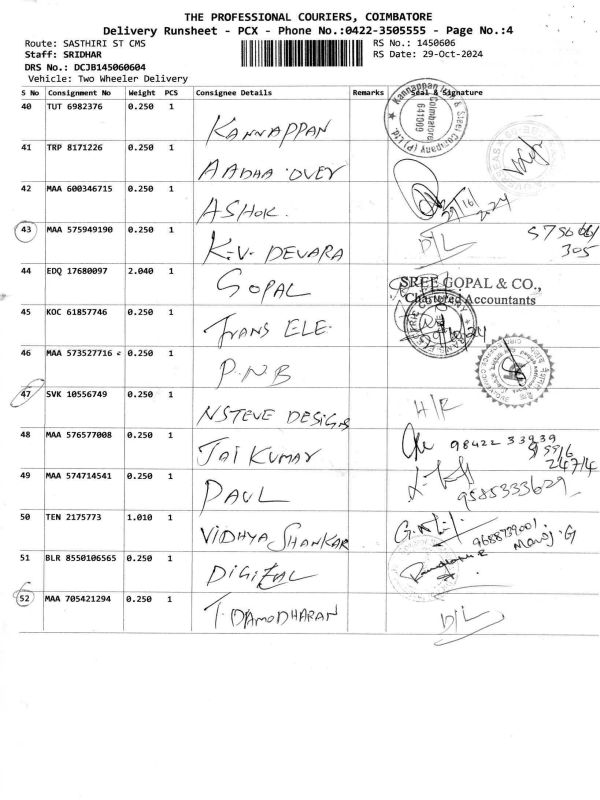 THE PROFESSIONAL COURIERS, COIMBATORE
Delivery Runsheet - PCX - Phone No.:0422-3505555 - Page No.:4
Route: SASTHIRI ST CMS RS No.: 1450606
Staff: SRIDHAR RS Date: 29-Oct-2024
DRS No.: DCJB145060604
Vehicle: Two Wheeler Delivery
S No Consignment No Weight PCS Consignee Details Remarks Seal & Signature
40 TUT 6982376 0.250 1 KANNAPPAN
Kannappan & Steel Company (P) Ltd. Coimbatore 641009
41 TRP 8171226 0.250 1 AADHA OVEY
42 MAA 600346715 0.250 1 ASHOK. 29/10/2024
43 MAA 575949190 0.250 1 K.V. DEVARA D/L 305
44 EDQ 17680097 2.040 1 GOPAL SREE GOPAL & CO.,
Chartered Accountants
45 KOC 61857746 0.250 1 TRANS ELE.
46 MAA 573527716 c 0.250 1 P.N.B
47 SVK 10556749 0.250 1 NSTEVE DESIGNS
48 MAA 576577008 0.250 1 JAI KUMAY 98422 33939
24714
49 MAA 574714541 0.250 1 PAUL 9585333629
50 TEN 2175773 1.010 1 VIDHYA SHANKAR 9688739001
Manoj.G
51 BLR 8550106565 0.250 1 DIGITAL
52 MAA 705421294 0.250 1 T. DAMODHARAN D/L